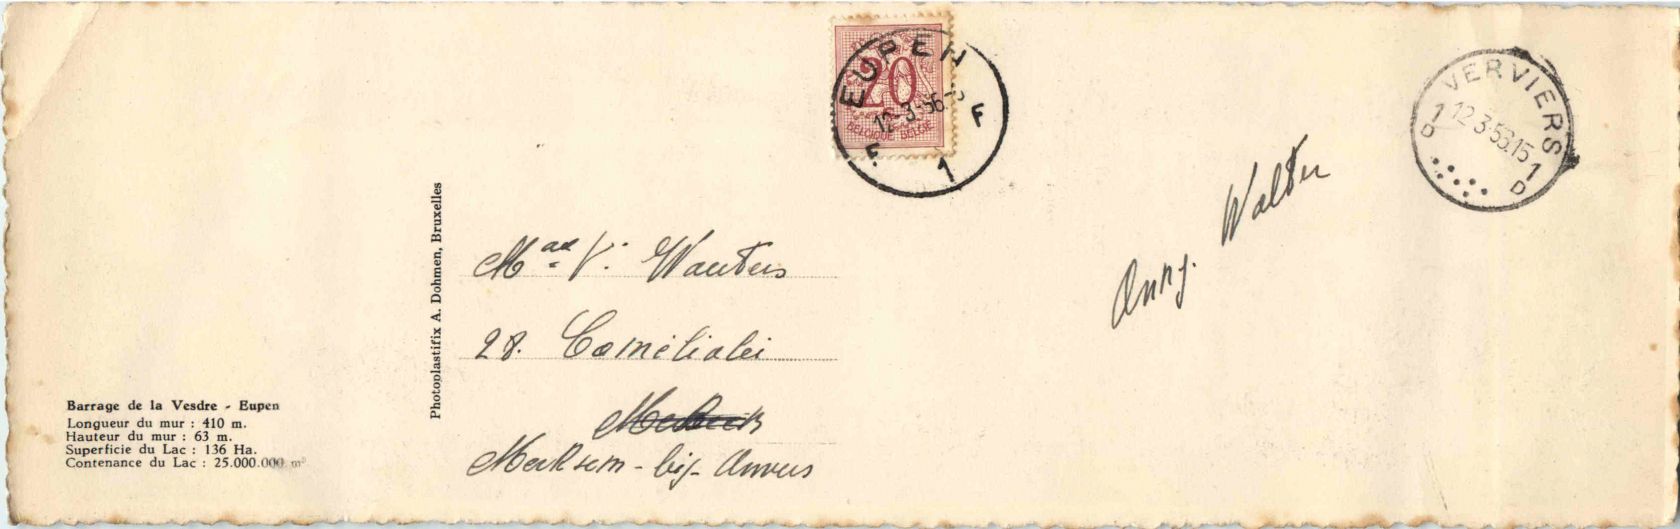 Barrage de la Vesdre - Eupen
Longueur du mur : 410 m.
Hauteur du mur : 63 m.
Superficie du Lac : 136 Ha.
Contenance du Lac : 25.000.000 m³
Photoplastifix A. Dohmen, Bruxelles
EUPEN
12-3-56
F F
1
20
BELGIQUE BELGIE
Mad V. Wauters
28. Camélialei
Merksem - bij - Anvers
Anny. Walter
VERVIERS
1 12-3-56.15 1
D D